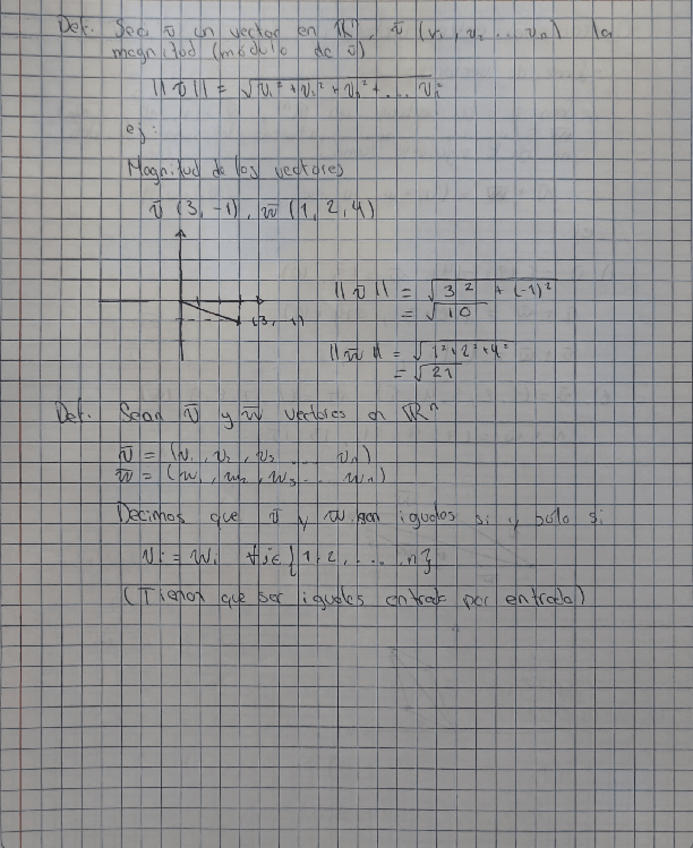 Def. Sea v̅ un vector en ℝⁿ, v̅ (v₁, v₂ ... vₙ) la
magnitud (módulo de v̅)
||v̅|| = √v₁² + v₂² + v₃² + ... vₙ²
ej:
Magnitud de los vectores
v̅ (3, -1), w̅ (1, 2, 4)
||v̅|| = √3² + (-1)²
= √10
(3, -1)
||w̅|| = √1²+2²+4²
= √21
Def. Sean v̅ y w̅ vectores en ℝⁿ
v̅ = (v₁, v₂, v₃ ... vₙ)
w̅ = (w₁, w₂, w₃ ... wₙ)
Decimos que v̅ y w̅ son iguales si y solo si
vᵢ = wᵢ ∀i∈{1, 2, ..., n}
(Tienen que ser iguales entrada por entrada)